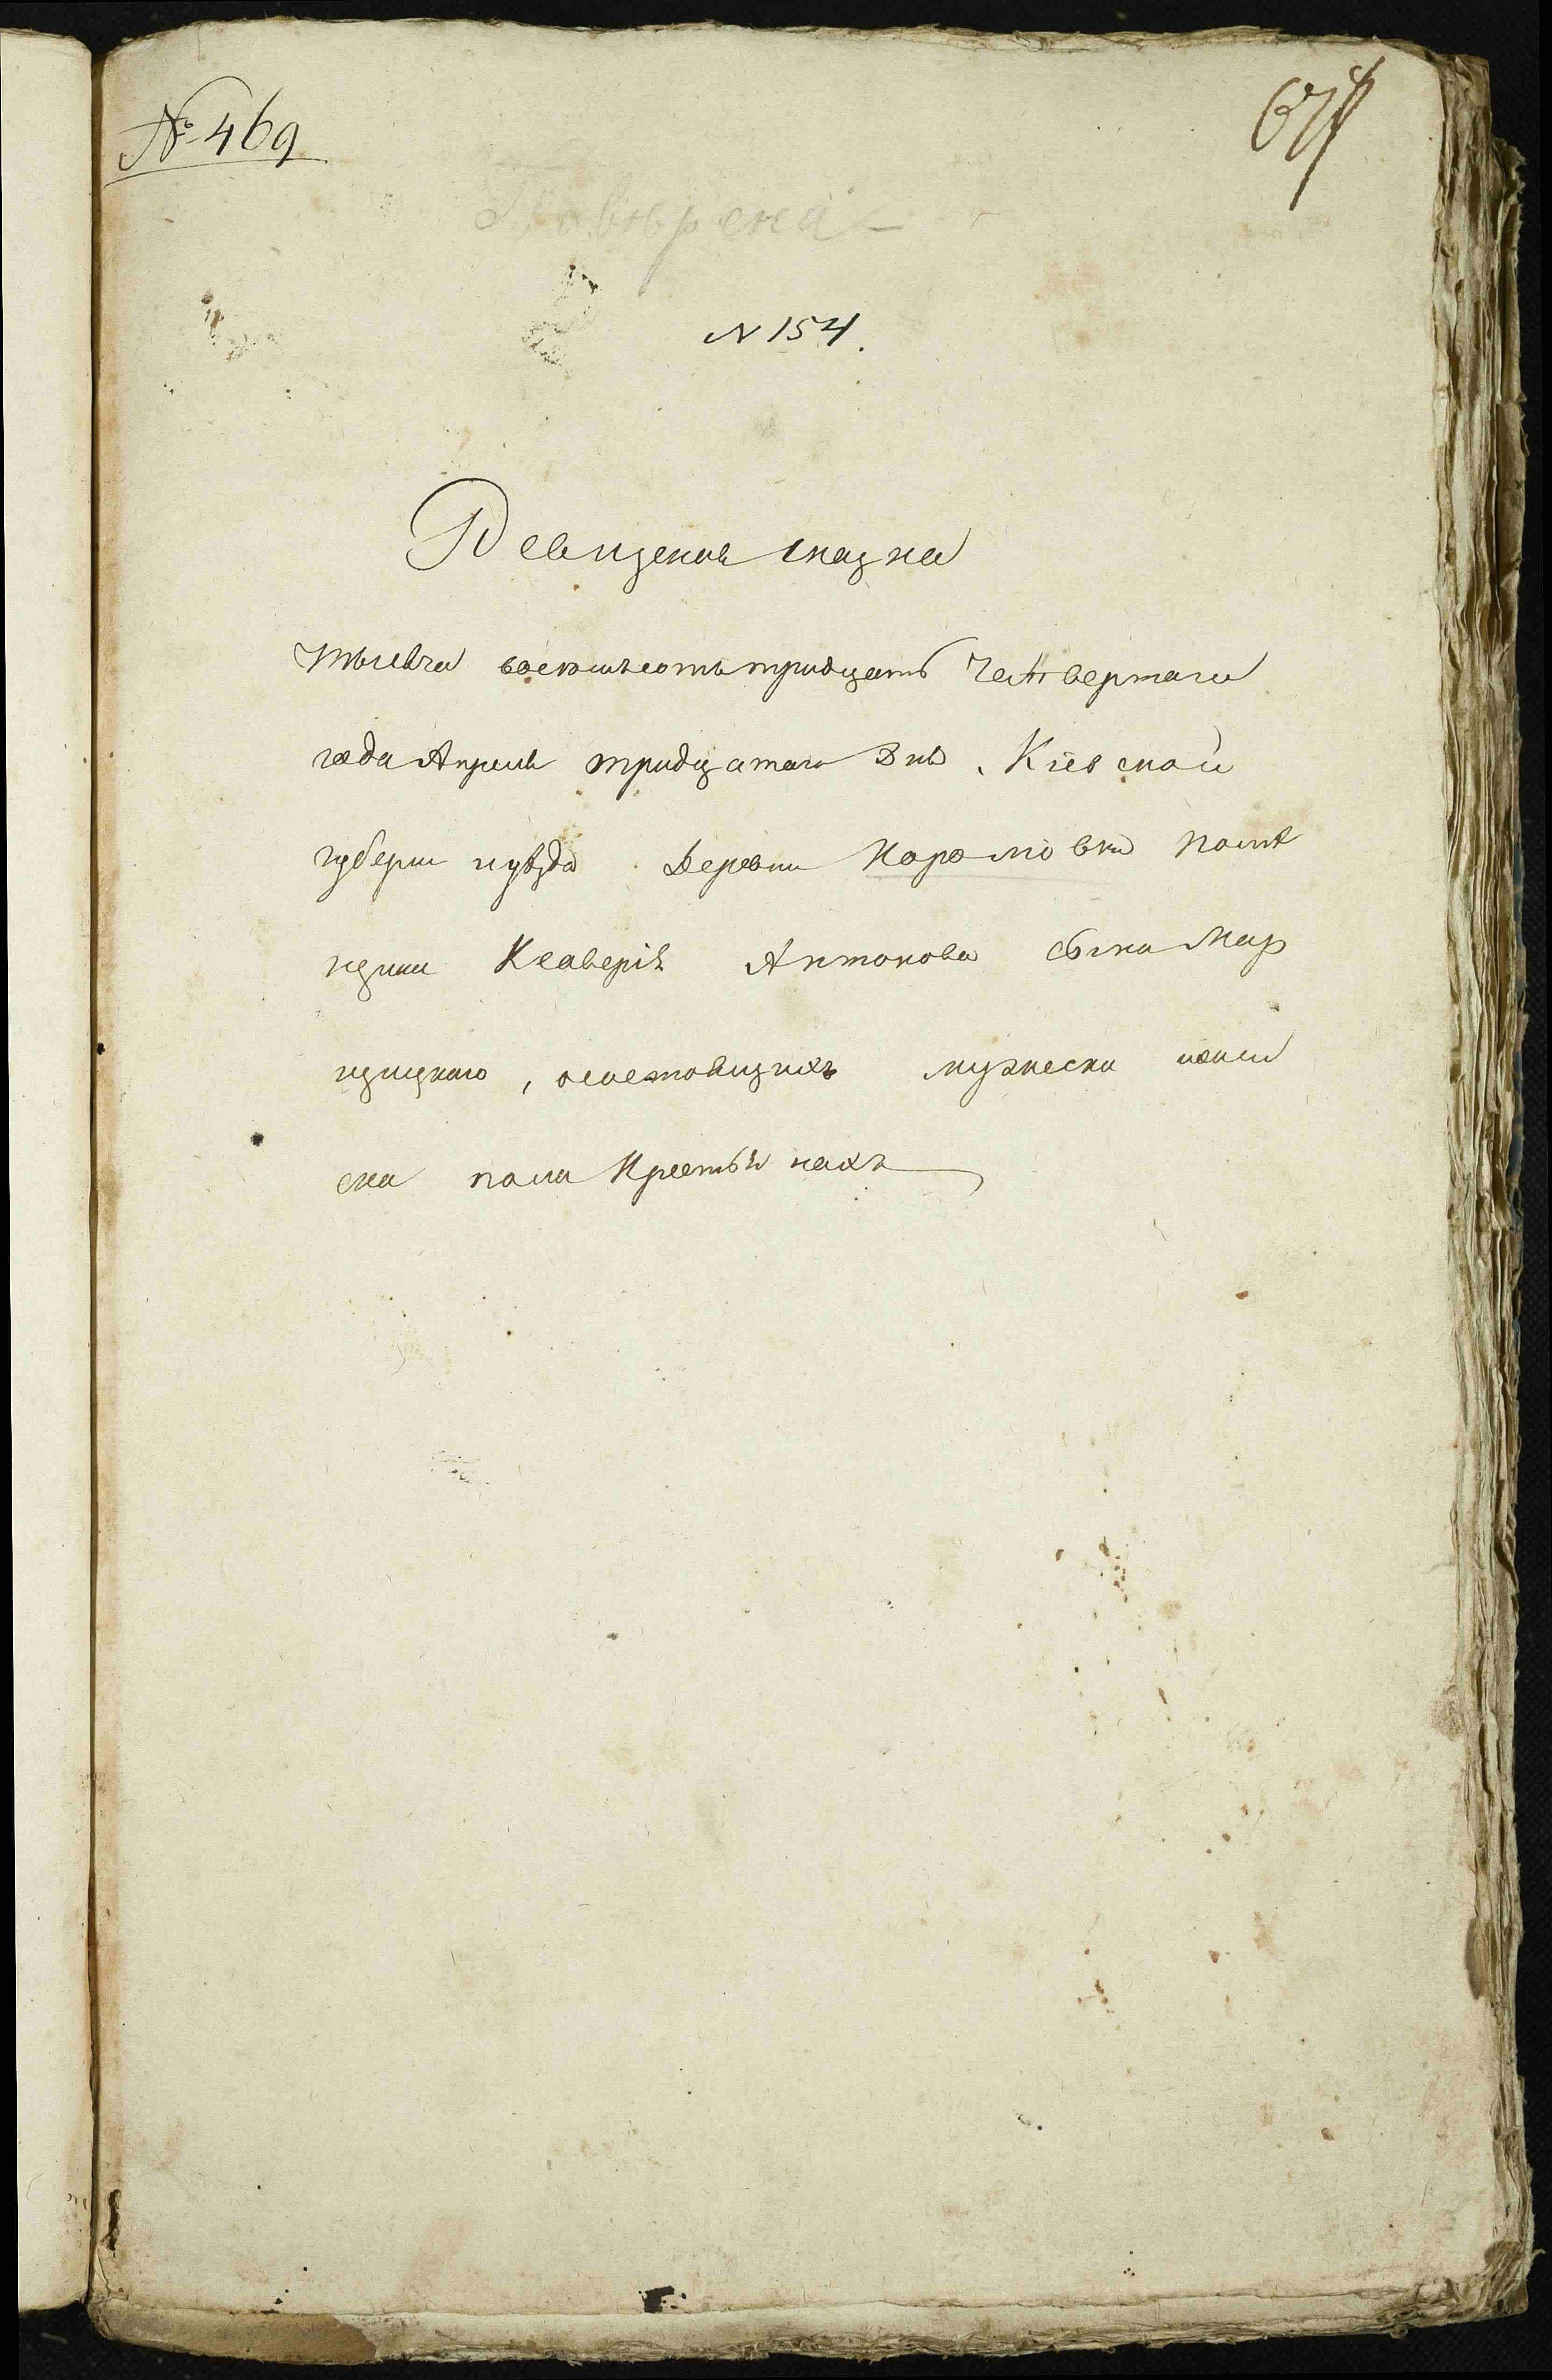 № 469
674
Повѣрена
N 154.
Ревизская сказка
тысяча восемьсотъ тридцать Четвертаго
года Апреля тридцатаго Дня. Кіевской
губерни иуѣзда Деревни Каромовки помѣ
щика Ксаверія Антонова сына Мар
цицкаго, осостоящихъ мужеска иженс
ка пола Крестьянахъ